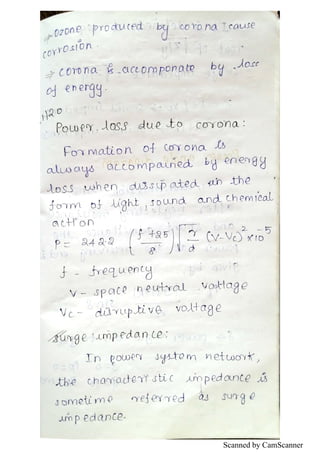 ⇒ ozone produced by corona cause
corrosion.
⇒ corona & accomponate by loss
of energy.
H2O
Power loss due to corona:
Formation of corona is
always accompained by energy
loss when dissipated in the
form of light, sound and chemical
action
P = 242.2 (f+25/δ) √r/d (V-Vc)² x10⁻⁵
f - frequency
V - space neutral voltage
Vc - disruptive voltage
surge impedance:
In power system network,
the characteristic impedance is
sometime referred as surge
impedance.
Scanned by CamScanner